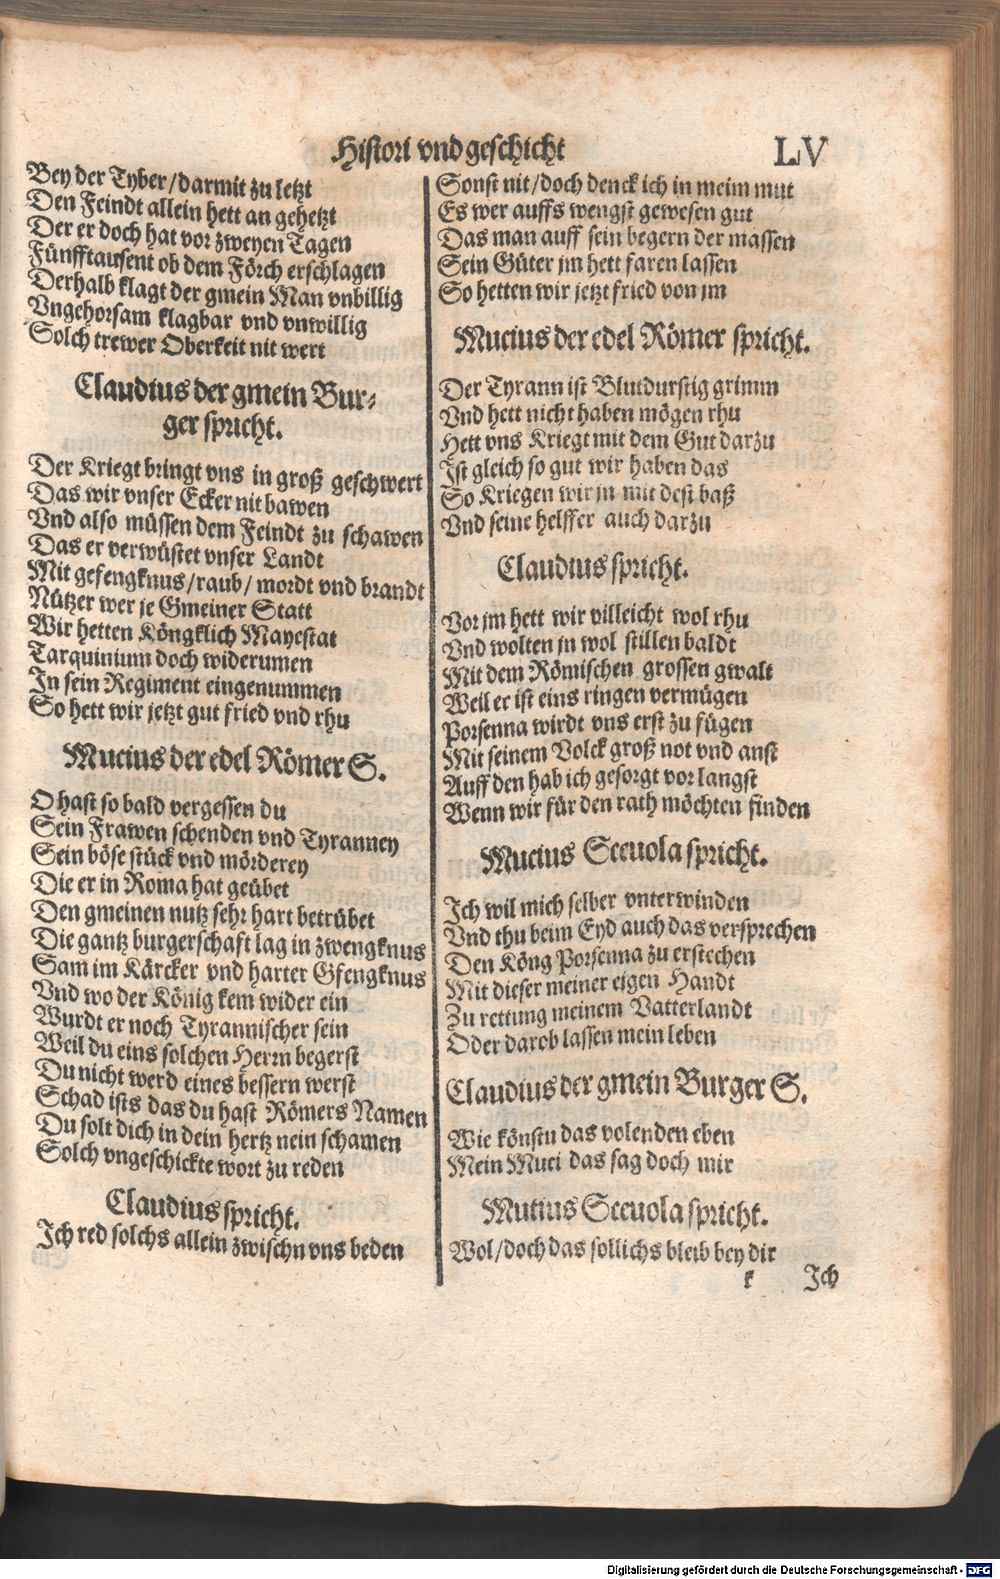 Histori vnd geschicht
LV
Bey der Tyber/darmit zu letzt
Den Feindt allein hett an gehetzt
Der er doch hat vor zweyen Tagen
Fünfftausent ob dem Förch erschlagen
Derhalb klagt der gmein Man vnbillig
Vngehorsam klagbar vnd vnwillig
Solch trewer Oberkeit nit wert
Claudius der gmein Bur-
ger spricht.
Der Kriegt bringt vns in groß geschwert
Das wir vnser Ecker nit bawen
Vnd also müssen dem Feindt zu schawen
Das er verwüstet vnser Landt
Mit gefengknus/raub/mordt vnd brandt
Nützer wer je Gmeiner Statt
Wir hetten Köngklich Mayestat
Tarquinium doch widerumen
In sein Regiment eingenummen
So hett wir jetzt gut fried vnd rhu
Mucius der edel Römer S.
O hast so bald vergessen du
Sein Frawen schenden vnd Tyranney
Sein böse stück vnd mörderey
Die er in Roma hat geübet
Den gmeinen nutz sehr hart betrübet
Die gantz burgerschaft lag in zwengknus
Sam im Kärcker vnd harter Gfengknus
Vnd wo der König kem wider ein
Wurdt er noch Tyrannischer sein
Weil du eins solchen Herrn begerst
Du nicht werd eines bessern werst
Schad ists das du hast Römers Namen
Du solt dich in dein hertz nein schamen
Solch vngeschickte wort zu reden
Claudius spricht.
Ich red solchs allein zwischn vns beden
Sonst nit/doch denck ich in meim mut
Es wer auffs wengst gewesen gut
Das man auff sein begern der massen
Sein Güter jm hett faren lassen
So hetten wir jetzt fried von jm
Mucius der edel Römer spricht.
Der Tyrann ist Blutdurstig grimm
Vnd hett nicht haben mögen rhu
Hett vns Kriegt mit dem Gut darzu
Ist gleich so gut wir haben das
So Kriegen wir jn mit dest baß
Vnd seine helffer auch darzu
Claudius spricht.
Vor jm hett wir villeicht wol rhu
Vnd wolten jn wol stillen baldt
Mit dem Römischen grossen gwalt
Weil er ist eins ringen vermügen
Porsenna wirdt vns erst zu fügen
Mit seinem Volck groß not vnd anst
Auff den hab ich gesorgt vor langst
Wenn wir für den rath möchten finden
Mucius Sceuola spricht.
Ich wil mich selber vnterwinden
Vnd thu beim Eyd auch das versprechen
Den Köng Porsenna zu erstechen
Mit dieser meiner eigen Handt
Zu rettung meinem Vatterlandt
Oder darob lassen mein leben
Claudius der gmein Burger S.
Wie könstu das volenden eben
Mein Muci das sag doch mir
Mutius Sceuola spricht.
Wol/doch das sollichs bleib bey dir
k
Ich
Digitalisierung gefördert durch die Deutsche Forschungsgemeinschaft - DFG